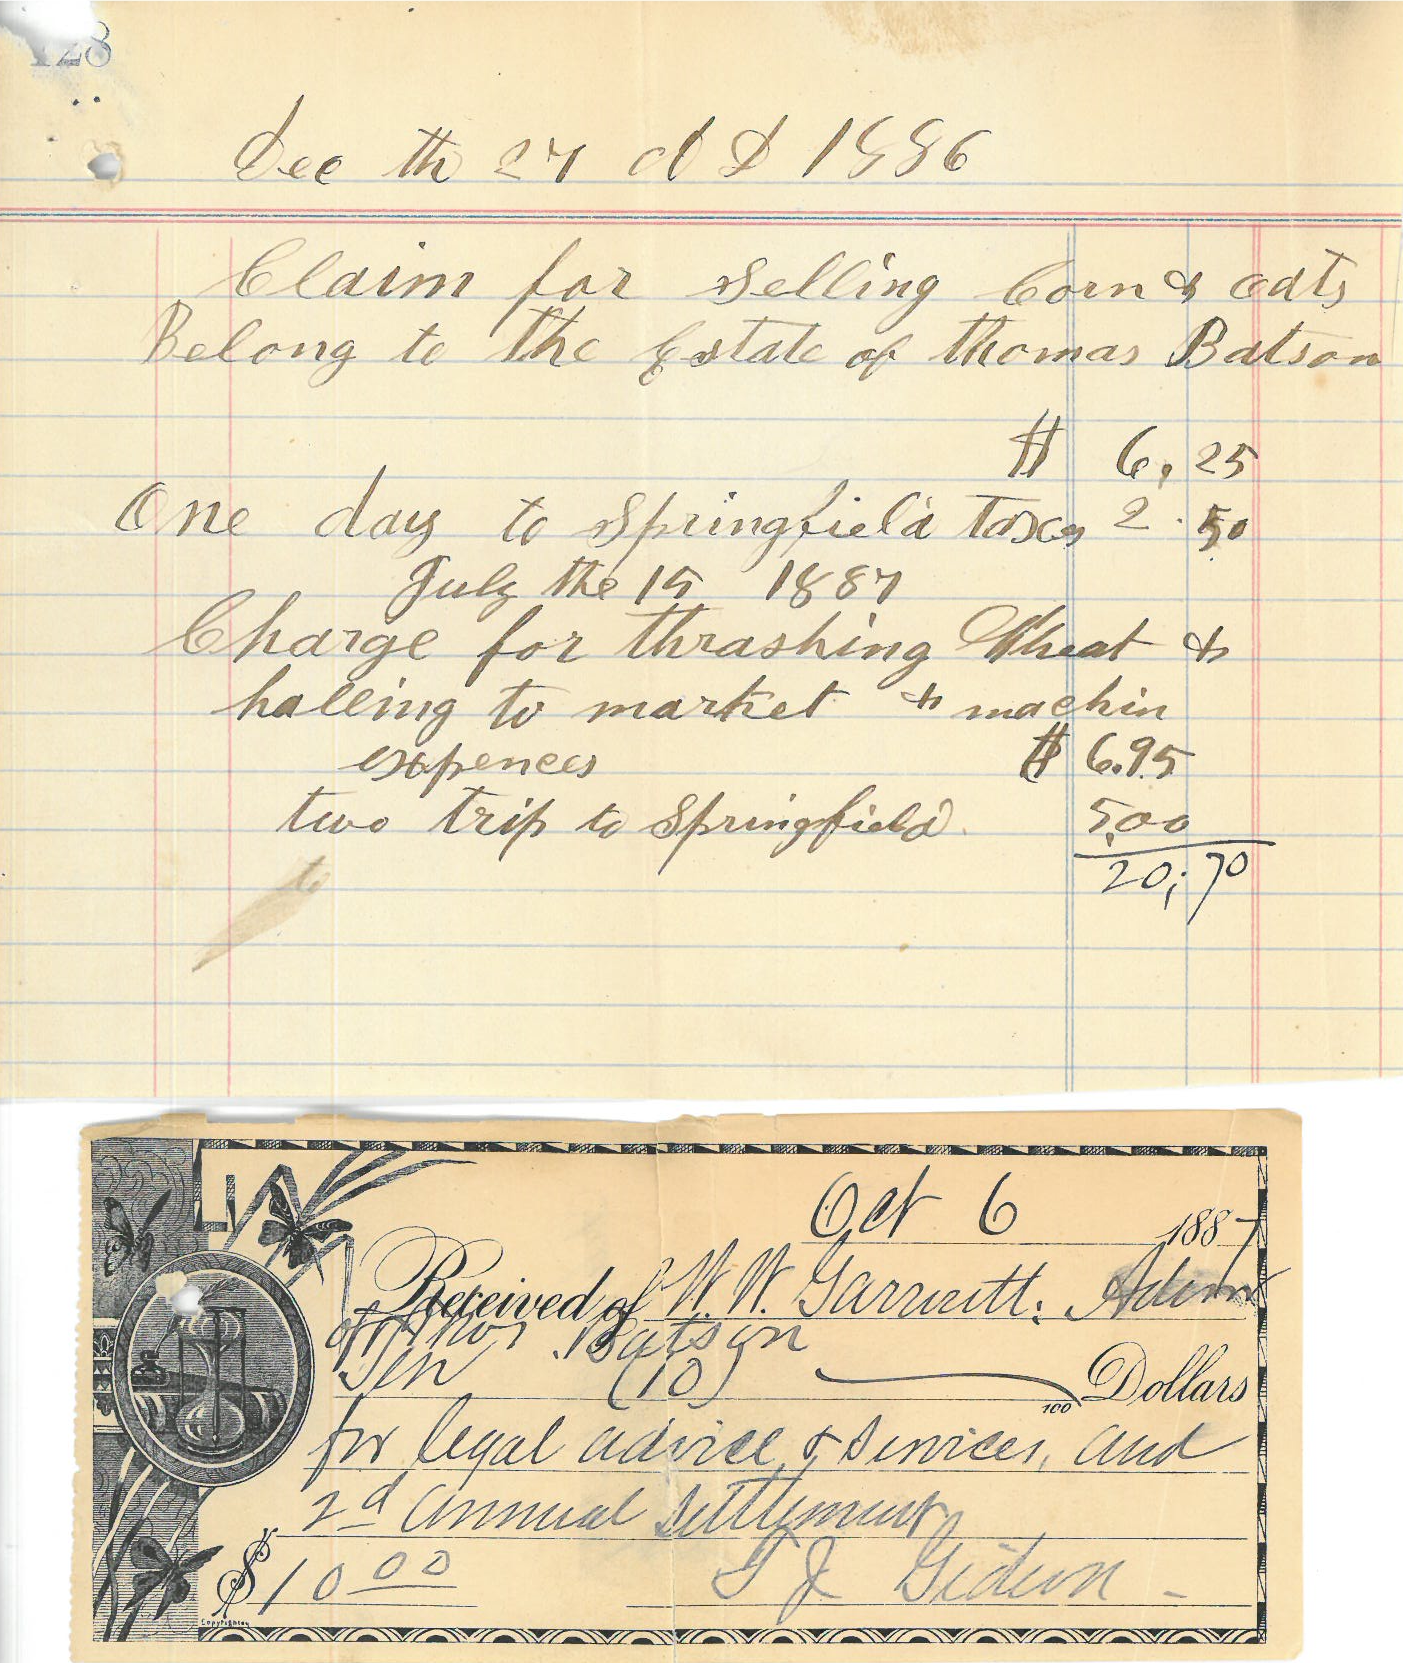 128
Dec th 27 A D 1886
Claim for Selling Corn & oats
Belong to the Estate of thomas Batson
$ 6,25
One day to Springfield Taxes 2.50
July the 15 1887
Charge for thrashing Wheat &
halling to market & machin
expences $ 6.95
two trip to Springfield 5,00
20,70
to
Oct 6 1887
Received of W. W. Garrett: Adimr
of Thos. Batson
Ten (10) 100 Dollars
for legal advice & services, and
2d annual settlement
$10 00 T J Gideon
Copyrighted